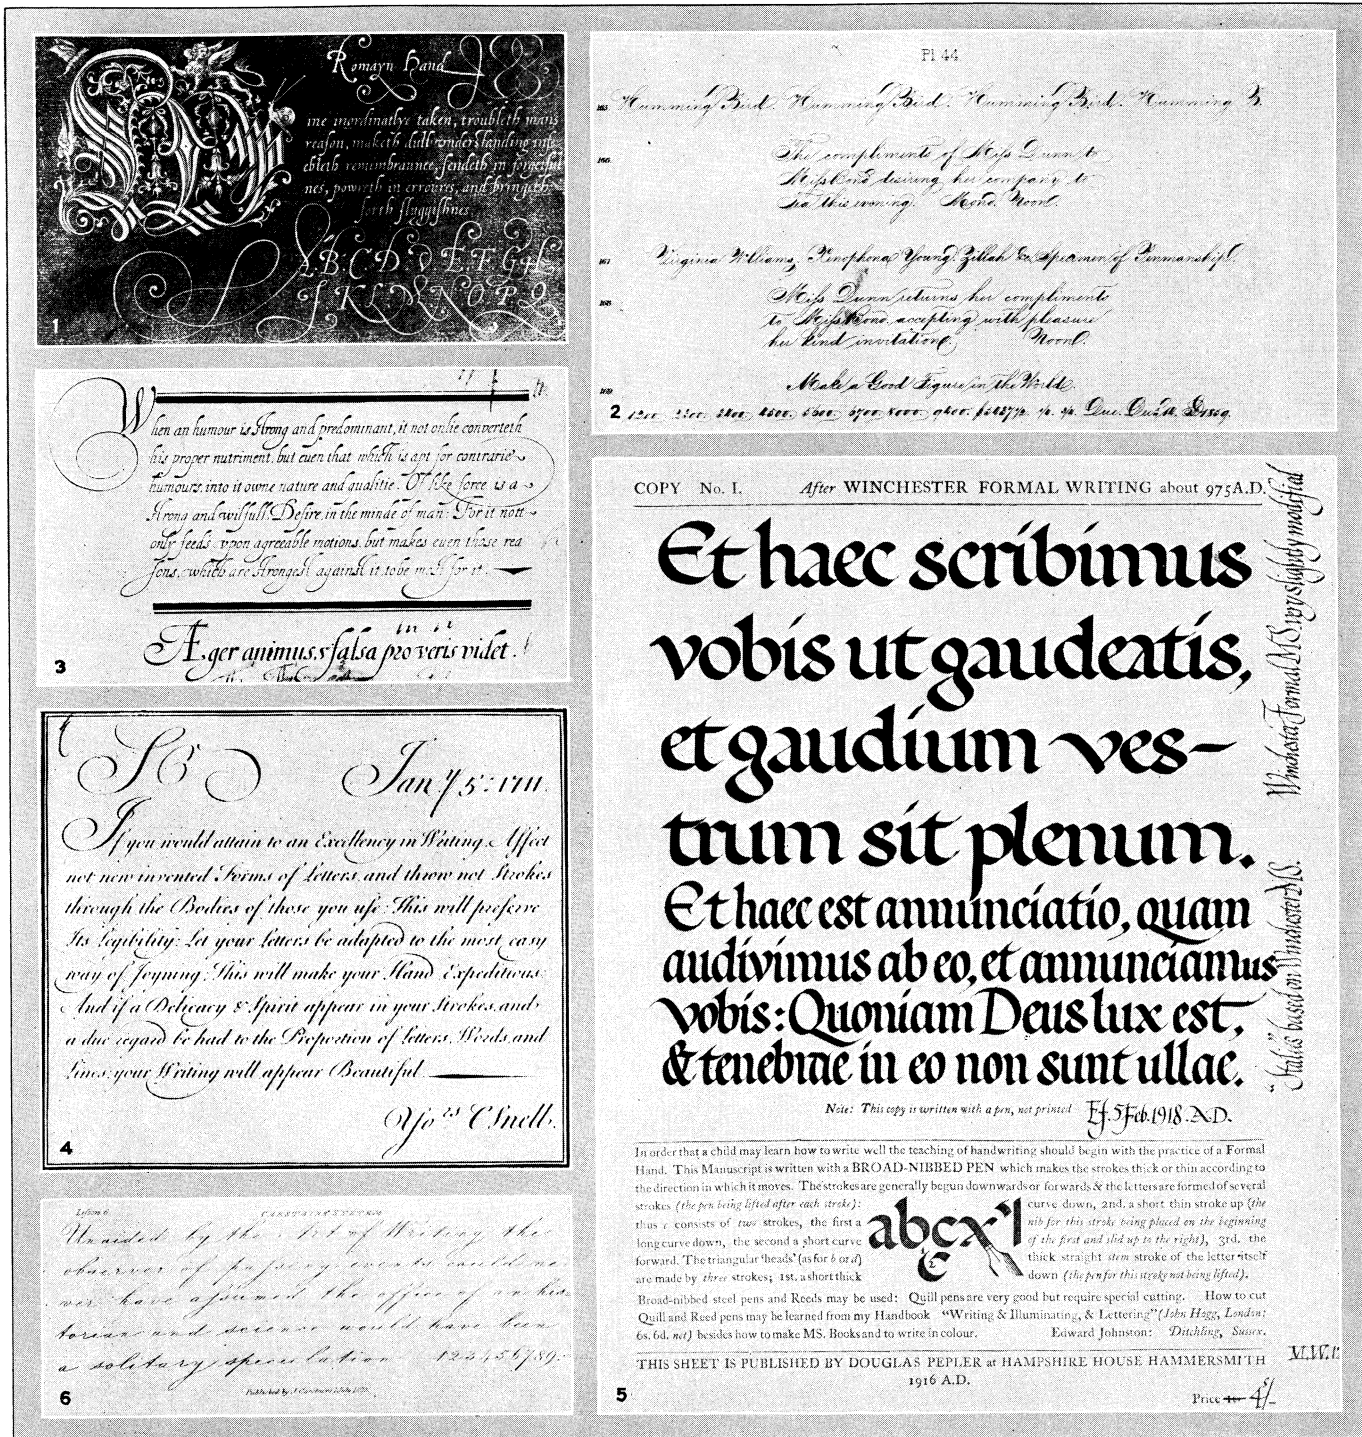 Romayn Hand
ine inordinatlye taken, troubleth mans
reason, maketh dull understanding infe
ebleth remembraunce, sendeth in forgetful
nes, powreth in erroures, and bringeth
forth sluggishnes
A B C D E F G H
I K L M N O P Q
1
Pl 44
165 Humming Bird. Humming Bird. Humming Bird. Humming B.
166 The compliments of Miss Dunn to
Miss Bond desiring her company to
tea this evening. Mond. Noon.
167 Virginia Williams, Xenophona Young. Zillah &c. Specimen of Penmanship.
168 Miss Dunn returns her compliments
to Miss Bond accepting with pleasure
her kind invitation. Noon.
169 Make a Good Figure in the World.
2
When an humour is strong and predominant, it not onlie converteth
his proper nutriment, but euen that which is apt for contrarie
humours, into it owne nature and qualitie. Of like force is a
strong and wilfull Desire, in the minde of man: For it nott
only feeds vpon agreeable motions, but makes euen those rea
sons, which are strongest against it, to be for it.
Æger animus, falsa pro veris videt.
3
Sr Jan. ye 5th: 1711.
If you would attain to an Excellency in Writing, Affect
not new invented Forms of Letters, and throw not Strokes
through the Bodies of those you use: This will preserve
Its Legibility: Let your Letters be adapted to the most easy
way of Joyning: This will make your Hand Expeditious:
And if a Delicacy & Spirit appear in your Strokes, and
a due regard be had to the Proportion of Letters, Words, and
Lines; your Writing will appear Beautiful.
C Snell.
4
COPY No. I. After WINCHESTER FORMAL WRITING about 975 A.D.
Et haec scribimus
vobis ut gaudeatis,
et gaudium ves-
trum sit plenum.
Et haec est annunciatio, quam
audivimus ab eo, et annunciamus
vobis: Quoniam Deus lux est,
& tenebrae in eo non sunt ullae.
Note: This copy is written with a pen, not printed EJ. 5 Feb. 1918. A.D.
In order that a child may learn how to write well the teaching of handwriting should begin with the practice of a Formal
Hand. This Manuscript is written with a BROAD-NIBBED PEN which makes the strokes thick or thin according to
the direction in which it moves. The strokes are generally begun downwards or forwards & the letters are formed of several
strokes (the pen being lifted after each stroke):
thus c consists of two strokes, the first a
long curve down, the second a short curve
forward. The triangular 'heads' (as for b or d)
are made by three strokes; 1st. a short thick
abcx
curve down, 2nd. a short thin stroke up (the
nib for this stroke being placed on the beginning
of the first and slid up to the right), 3rd. the
thick straight stem stroke of the letter itself
down (the pen for this stroke not being lifted).
Broad-nibbed steel pens and Reeds may be used: Quill pens are very good but require special cutting. How to cut
Quill and Reed pens may be learned from my Handbook "Writing & Illuminating, & Lettering" (John Hogg, London:
6s. 6d. net) besides how to make MS. Books and to write in colour. Edward Johnston: Ditchling, Sussex.
THIS SHEET IS PUBLISHED BY DOUGLAS PEPLER at HAMPSHIRE HOUSE HAMMERSMITH
1916 A.D.
Price 4/-
5
Winchester Formal MS. copy slightly modified
"Italic" based on Winchester MS.
Lesson 6 CARSTAIRS SYSTEM
Unaided by the Art of Writing the
observer of passing events could ne
ver have assumed the office of an his
torian and science would have been
a solitary speculation 123456789.
6